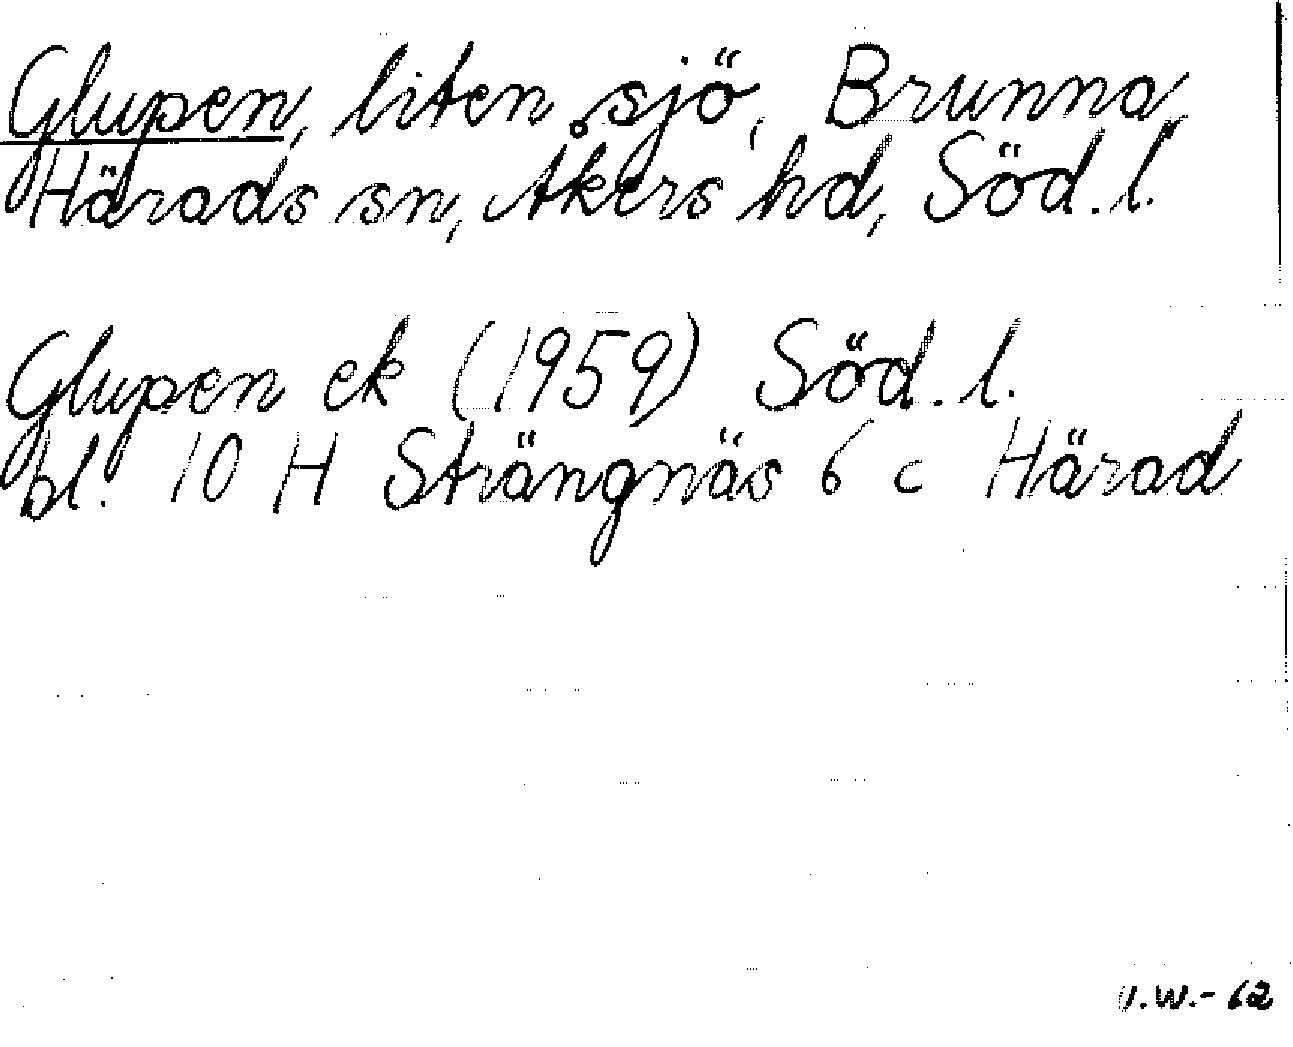 Glupen, liten sjö, Brunna,
Härads sn, Åkers hd, Söd. l.
Glupen ek (1959) Söd. l.
bl. 10 H Strängnäs 6 c Härad
U.W.-62